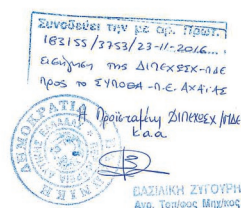 Συνοδεύει την με αρ. πρωτ.
183155/3753/23-11-2016...
εισήγηση της ΔΙΠΕΧΩΣΧ-ΠΔΕ
προς το ΣΥΠΟΘΑ-Π.Ε. ΑΧΑΪΑΣ
Η Προϊσταμένη ΔΙΠΕΧΩΣΧ/ΠΔΕ
κ.α.α
ΒΑΣΙΛΙΚΗ ΖΥΓΟΥΡΗ
Αγρ. Τοπ/φος Μηχ/κος